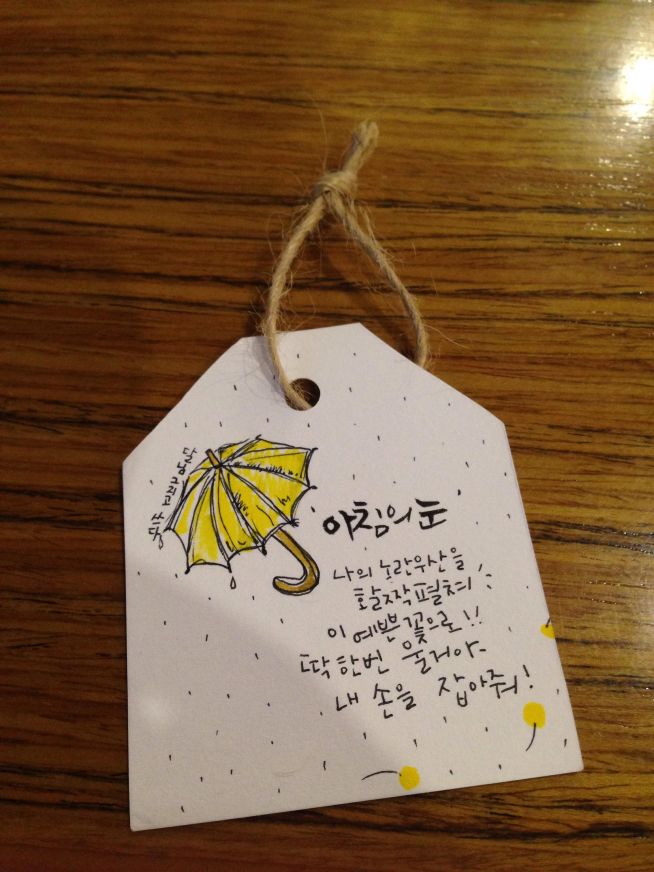 아침의 눈
나의 노란우산을
활짝 펼쳐
이 예쁜 꽃으로!!
딱 한번 울거야
내 손을 잡아줘!